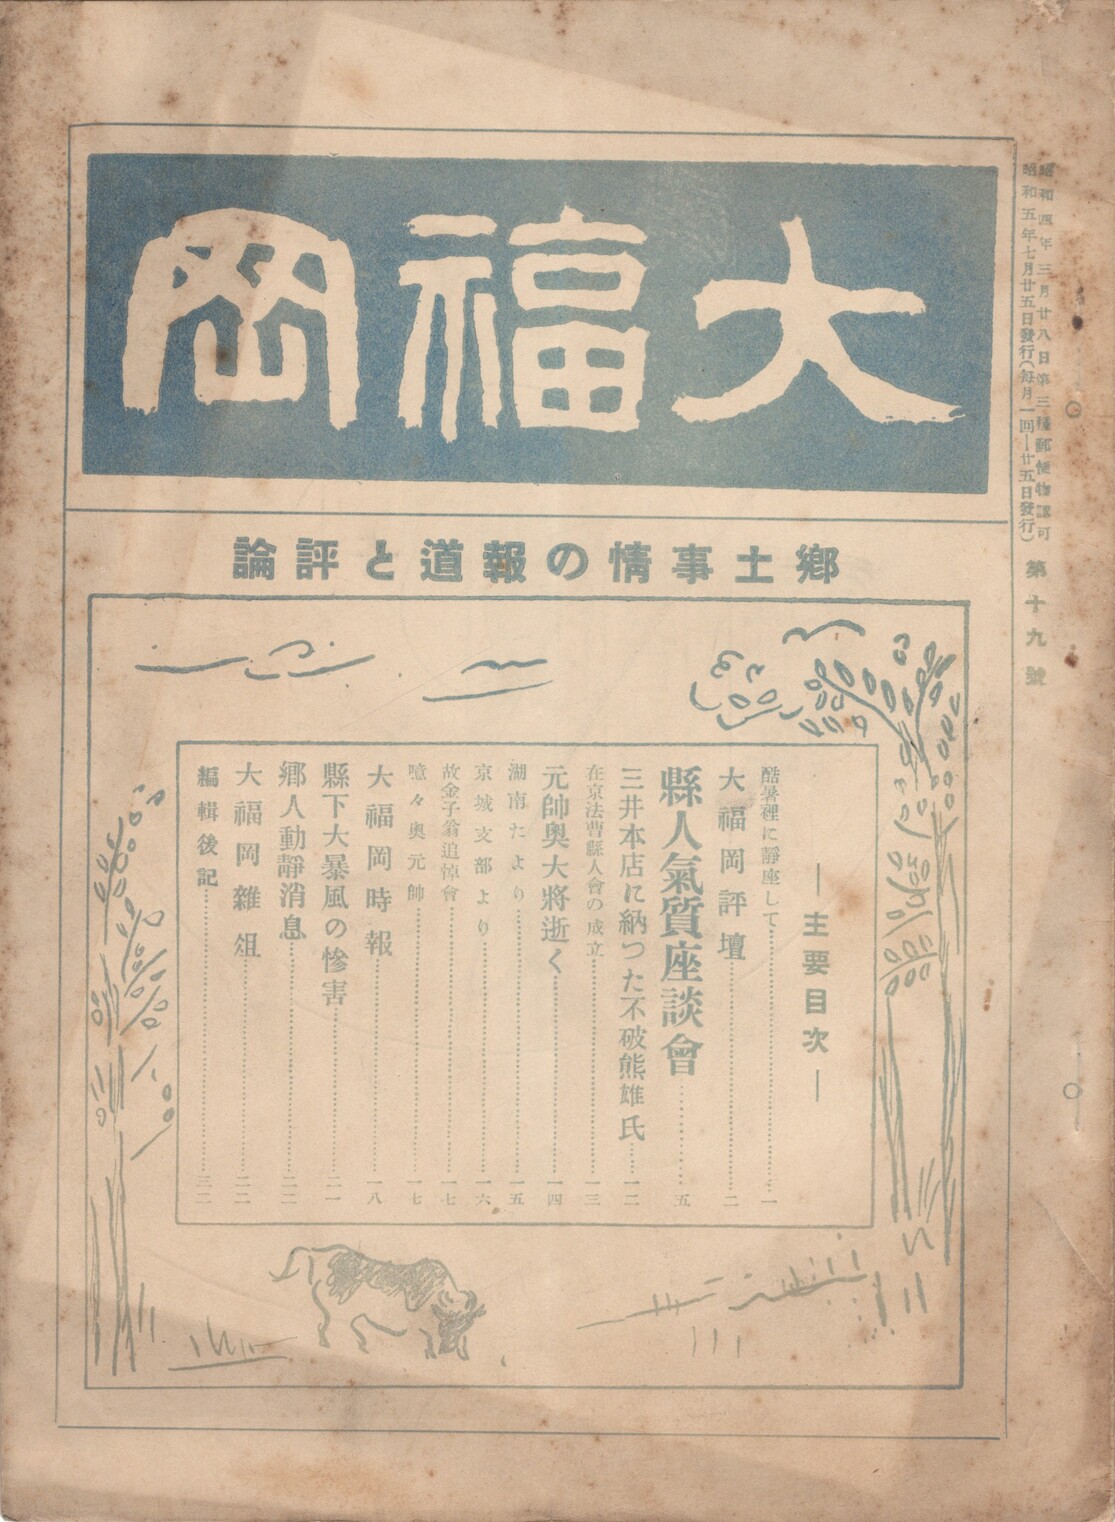 昭和四年三月廿八日第三種郵便物認可
昭和五年七月廿五日發行(每月一回廿五日發行)
第十九號
大福岡
鄕土事情の報道と評論
―主要目次―
酷暑裡に靜座して……一
大福岡評壇……二
縣人氣質座談會……五
三井本店に納つた不破熊雄氏……一二
在京法曹縣人會の成立……一三
元帥奧大將逝く……一四
湖南たより……一五
京城支部より……一六
故金子翁追悼會……一七
噫々奧元帥……一七
大福岡時報……一八
縣下大暴風の慘害……二一
鄕人動靜消息……二二
大福岡雜俎……三二
編輯後記……三二